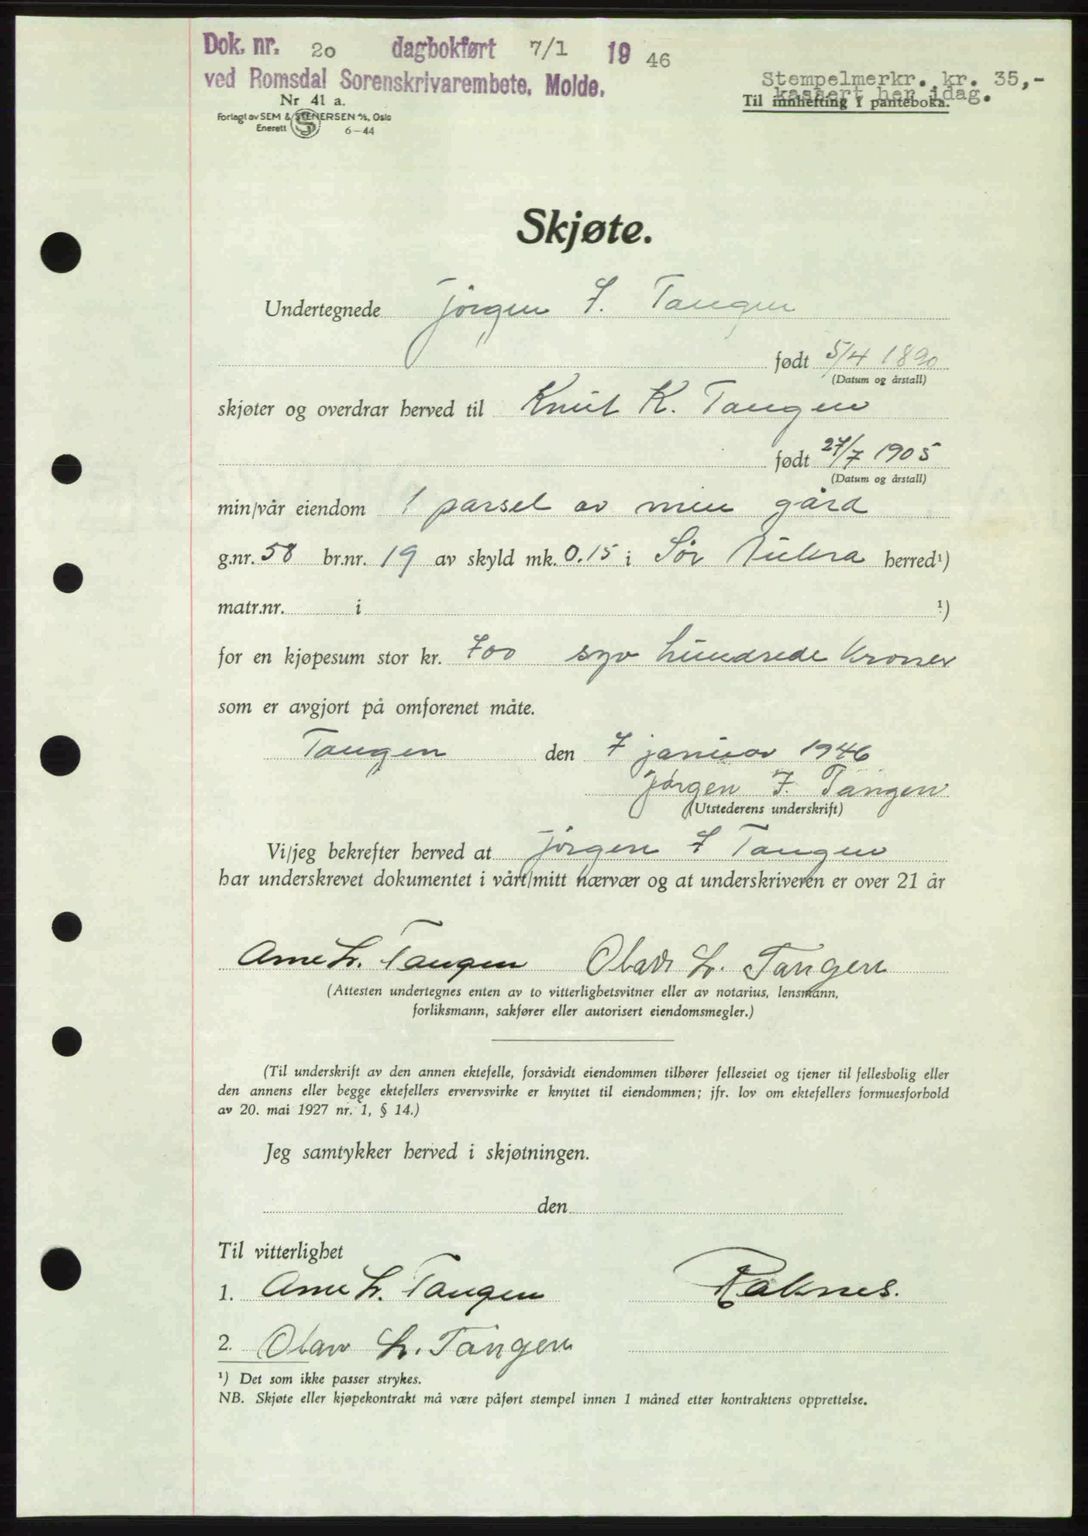 Dok. nr. 20 dagbokført 7/1 1946
ved Romsdal Sorenskrivarembete, Molde.
Stempelmerkr. kr. 35,-
kassert her idag.
Nr 41 a.
Til innhefting i panteboka.
Forlagt av SEM & STENERSEN A/S, Oslo
Enerett S 6-44
Skjøte.
Undertegnede Jørgen J. Tangen
født 5/4 1890
(Datum og årstall)
skjøter og overdrar herved til Knut K. Tangen
født 27/7 1905
(Datum og årstall)
min/vår eiendom 1 parsel av min gård
g.nr. 58 br.nr. 19 av skyld mk. 0.15 i Sør Aukra herred¹)
matr.nr. i ¹)
for en kjøpesum stor kr. 700 syv hundrede kroner
som er avgjort på omforenet måte.
Tangen den 7 januar 1946
Jørgen J. Tangen
(Utstederens underskrift)
Vi/jeg bekrefter herved at Jørgen J Tangen
har underskrevet dokumentet i vårt/mitt nærvær og at underskriveren er over 21 år
Arne L. Tangen Olav L. Tangen
(Attesten undertegnes enten av to vitterlighetsvitner eller av notarius, lensmann,
forliksmann, sakfører eller autorisert eiendomsmegler.)
(Til underskrift av den annen ektefelle, forsåvidt eiendommen tilhører felleseiet og tjener til fellesbolig eller
den annens eller begge ektefellers ervervsvirke er knyttet til eiendommen; jfr. lov om ektefellers formuesforhold
av 20. mai 1927 nr. 1, § 14.)
Jeg samtykker herved i skjøtningen.
den
Til vitterlighet
1. Arne L. Tangen Raknes.
2. Olav L. Tangen
¹) Det som ikke passer strykes.
NB. Skjøte eller kjøpekontrakt må være påført stempel innen 1 måned etter kontraktens opprettelse.